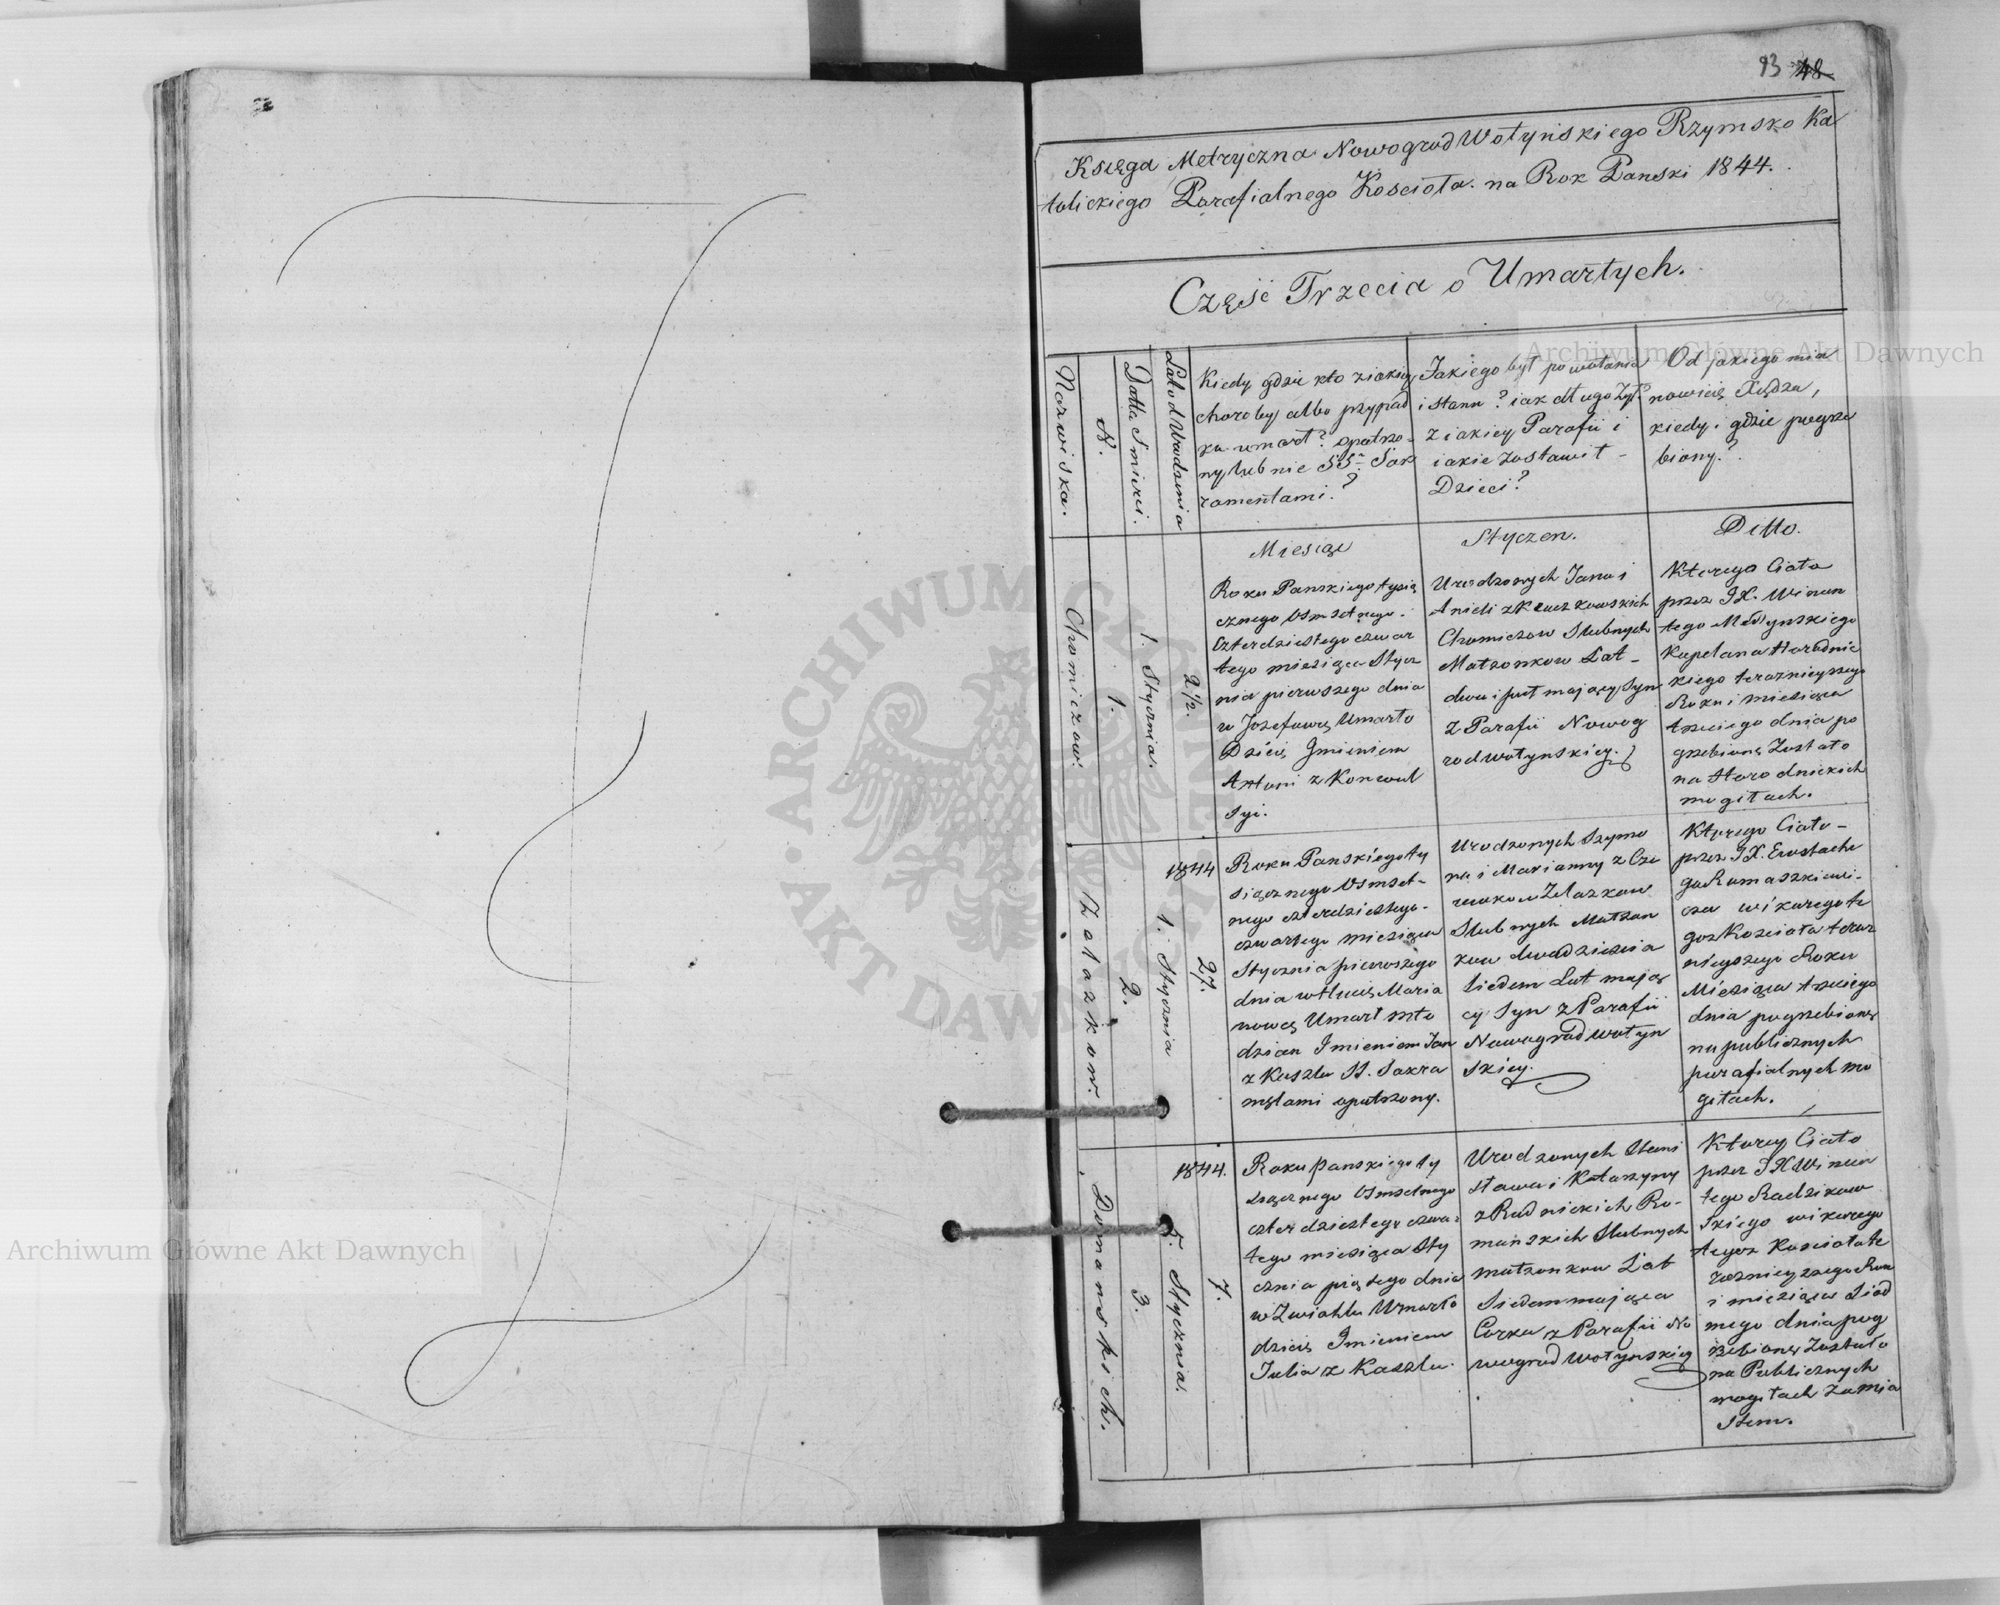 93 48
Księga Metryczna NowogradWołyńskiego Rzymsko Ka
tolickiego Parafialnego Kościoła na Rok Panski 1844.
Część Trzecia o Umarłych.
Nazwiska.
N.
Datta Smierci.
Lat od Urodzenia
Kiedy gdzie kto z iakiey
choroby albo przypad
ku umarł? opatrzo-
ny lub nie SS. Sak
ramentami?
Jakiego był powołania
i stanu? iak długo żył?
z iakiey Parafii i
iakie zostawił -
Dzieci?
Od jakiego mia
nowicie Xiędza,
kiedy i gdzie pogrze
biony?
Miesiąc
Styczen.
Ditto.
Chomiczow.
1.
1. Stycznia.
2 1/2.
Roku Panskiego tysią
cznego Osmsetnego
Czterdziestego czwar
tego miesiąca Stycz
nia pierwszego dnia
w Jozefowcę Umarło
Dziecię Imieniem
Antoni z Konwul
syi.
Urodzonych Jana i
Anieli z
Chomiczow Slubnych
Małzonkow Lat -
dwa i puł mający Syn
z Parafii Nowog
rodwołynskiey.
Ktorego Ciało
przez JX. Wincen
tego Młodynskiego
Kapelana Horodnic
kiego teraznieyszego
Roku i miesiąca
trzeciego dnia po
grzebione Zostało
na Horodnickich
mogiłach.
Żelazkow.
2.
1844
1. Stycznia
27.
Roku Panskiego ty
siącznego Osmset-
nego czterdziestego
czwartego miesiąca
Stycznia pierwszego
dnia w Maria
nowcę Umarł mło
dzian Imieniem Jan
z Kaszlu SS. Sakra
mętami opatrzony.
Urodzonych Szymo
na i Marianny z Cze
Zelazkow
Slubnych Małzon
kow dwadziescia
siedem Lat mają
cy Syn z Parafii
Nowogradwołyn
skiey.
Ktorego Ciało -
przez JX. Eustache
go Romaszkiewi-
cza wikarego te
goz Kościoła teraz
nieyszego Roku
Miesiąca trzeciego
dnia pogrzebione
na publicznych
parafialnych mo
giłach.
Domanskich.
3.
1844.
5. Stycznia.
7.
Roku panskiego ty
siącznego Osmsetnego
czterdziestego czwar
tego miesiąca Sty
cznia piątego dnia
w Zwiahlu Umarło
dziecię Imieniem
Julia z Kaszlu.
Urodzonych Stani
sława i Katarzyny
z Rudnickich Ro-
manskich Slubnych
małzonkow Lat
Siedem mająca
Corka z Parafii No
wogrod Wołynskiey
Ktorey Ciało
przez JX Wincen
tego Radzikow
skiego wikarego
tegoz Kościoła te
raznieyszego Roku
i miesiąca Siod
mego dnia pog
rzebione Zostało
na Publicznych
mogiłach za mia
stem.
ARCHIWUM GŁÓWNE AKT DAWNYCH
Archiwum Główne Akt Dawnych
Archiwum Główne Akt Dawnych